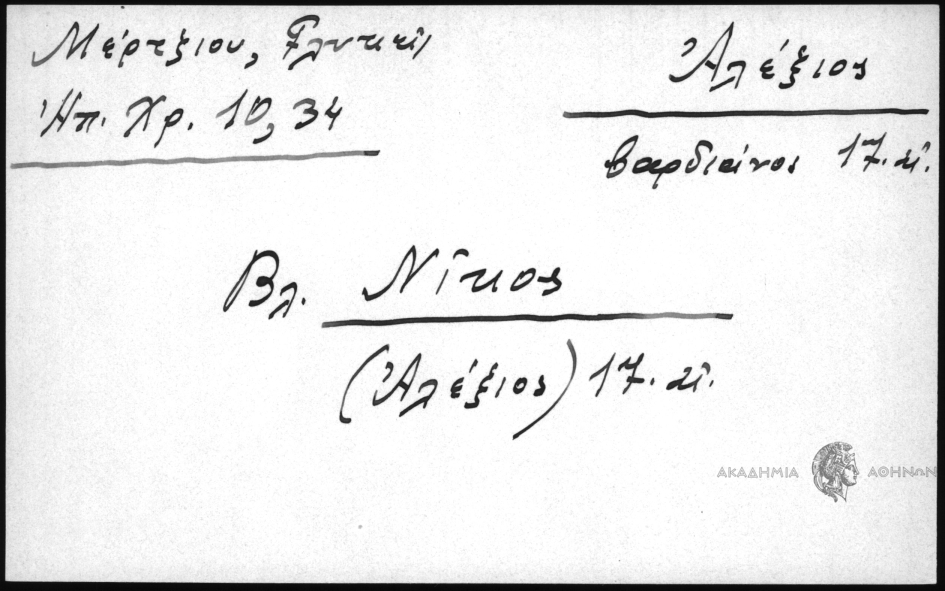 Μέρτζιου, Γλυκκῆ
Ἠπ. Χρ. 10, 34
Ἀλέξιος
βαρδιάνος 17. αἰ.
Βλ. Νῖκος
(Ἀλέξιος) 17. αἰ.
ΑΚΑΔΗΜΙΑ ΑΘΗΝΩΝ